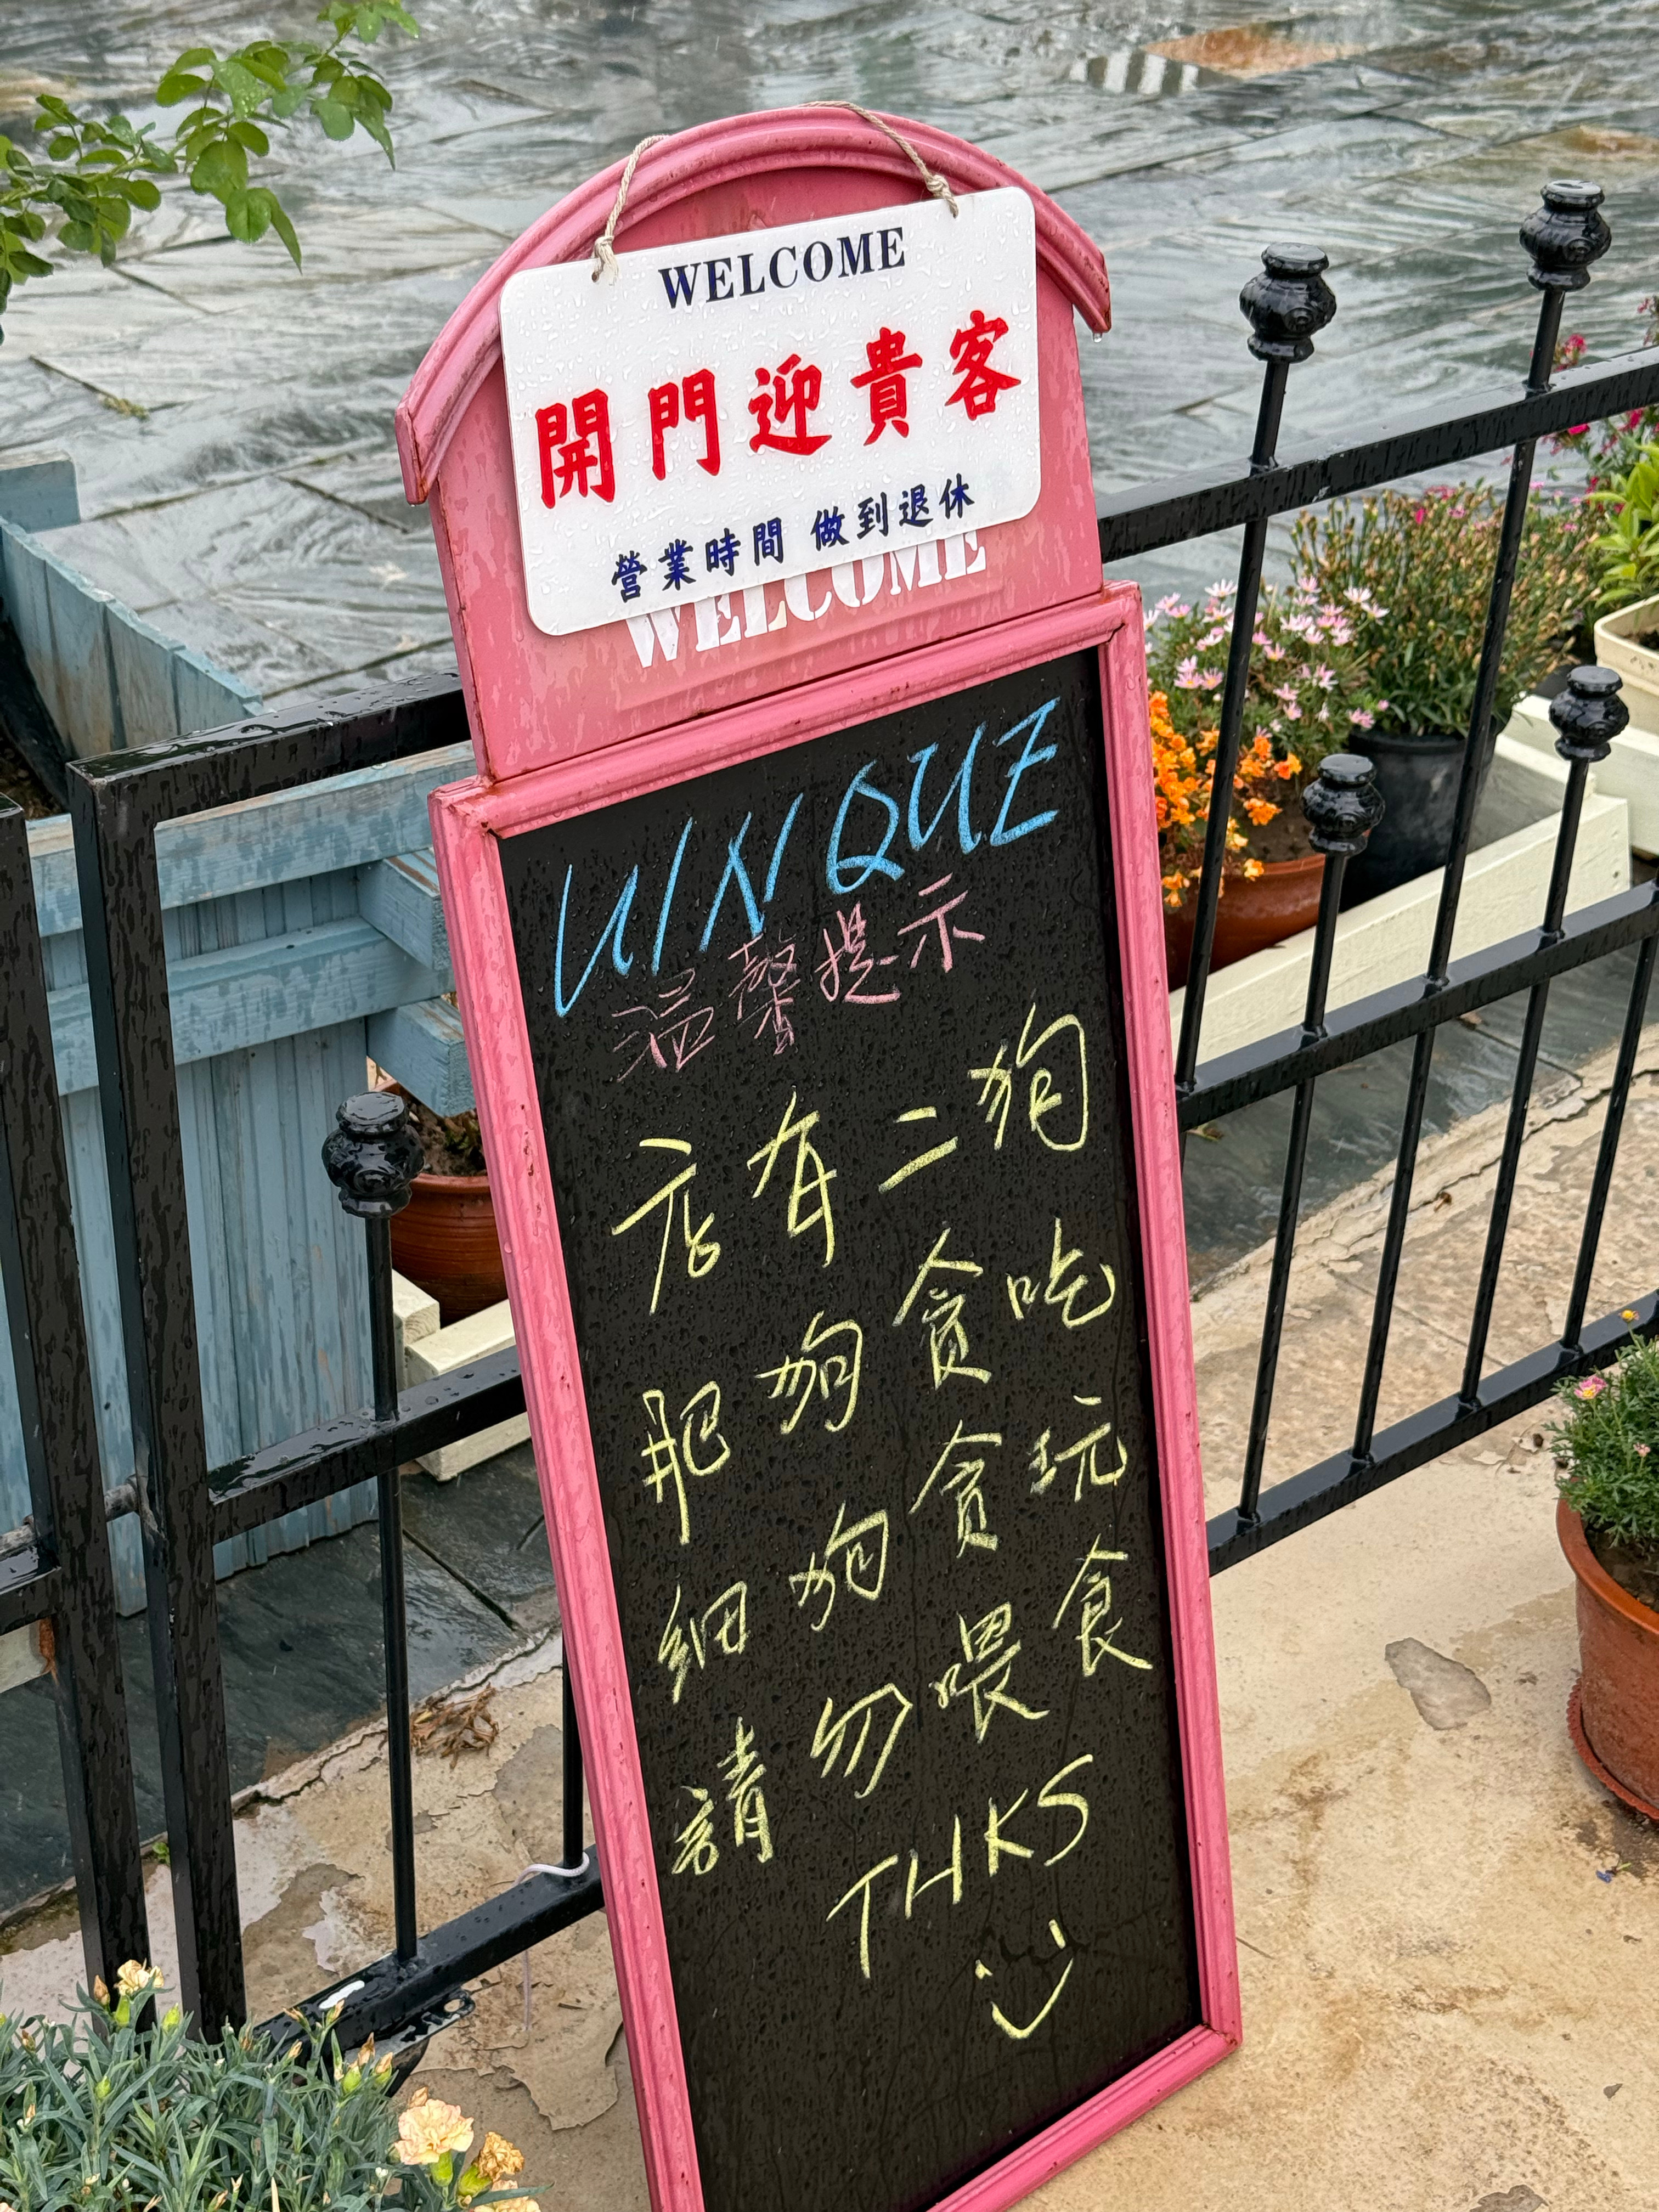 WELCOME
開門迎貴客
營業時間 做到退休
WELCOME
UNIQUE
温馨提示
店有二狗
肥狗貪吃
細狗貪玩
請勿喂食
THKS